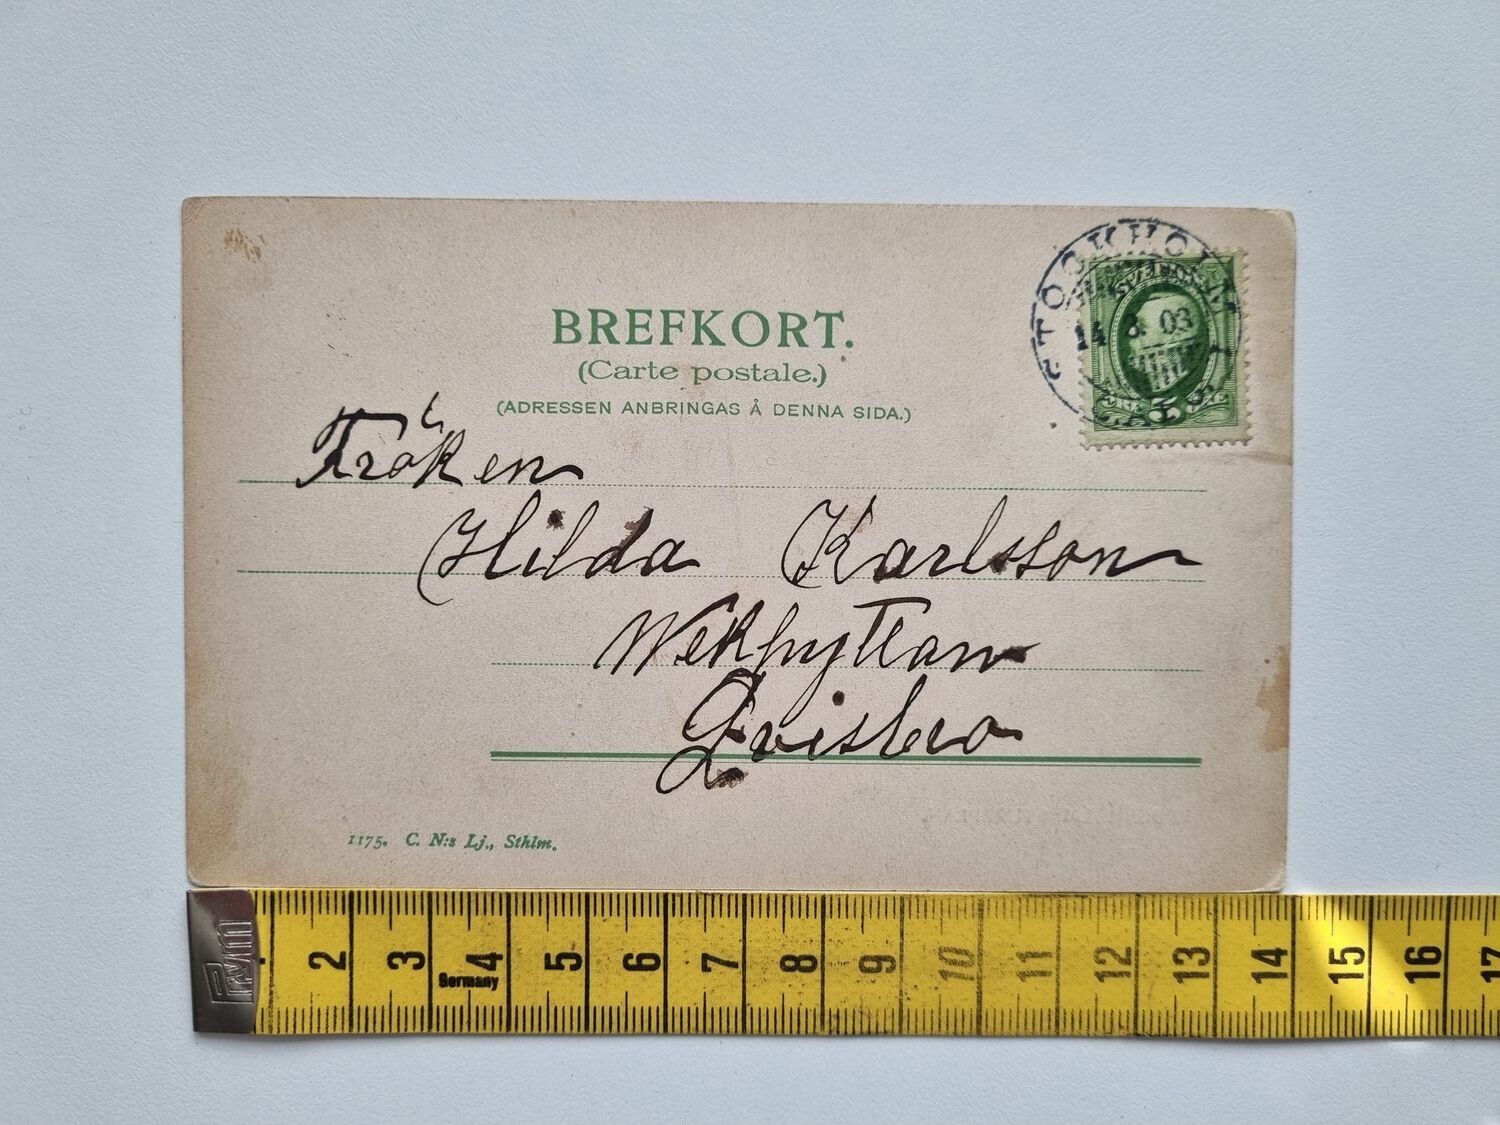 BREFKORT.
(Carte postale.)
(ADRESSEN ANBRINGAS Å DENNA SIDA.)
STOCKHOLM 1
14 8 03
SVERIGE
5
Fröken
Hilda Karlsson
Wekhyttan
Qvisbro
1175. C. N:s Lj., Sthlm.
Prym
2 3 4 5 6 7 8 9 10 11 12 13 14 15 16 17
Germany